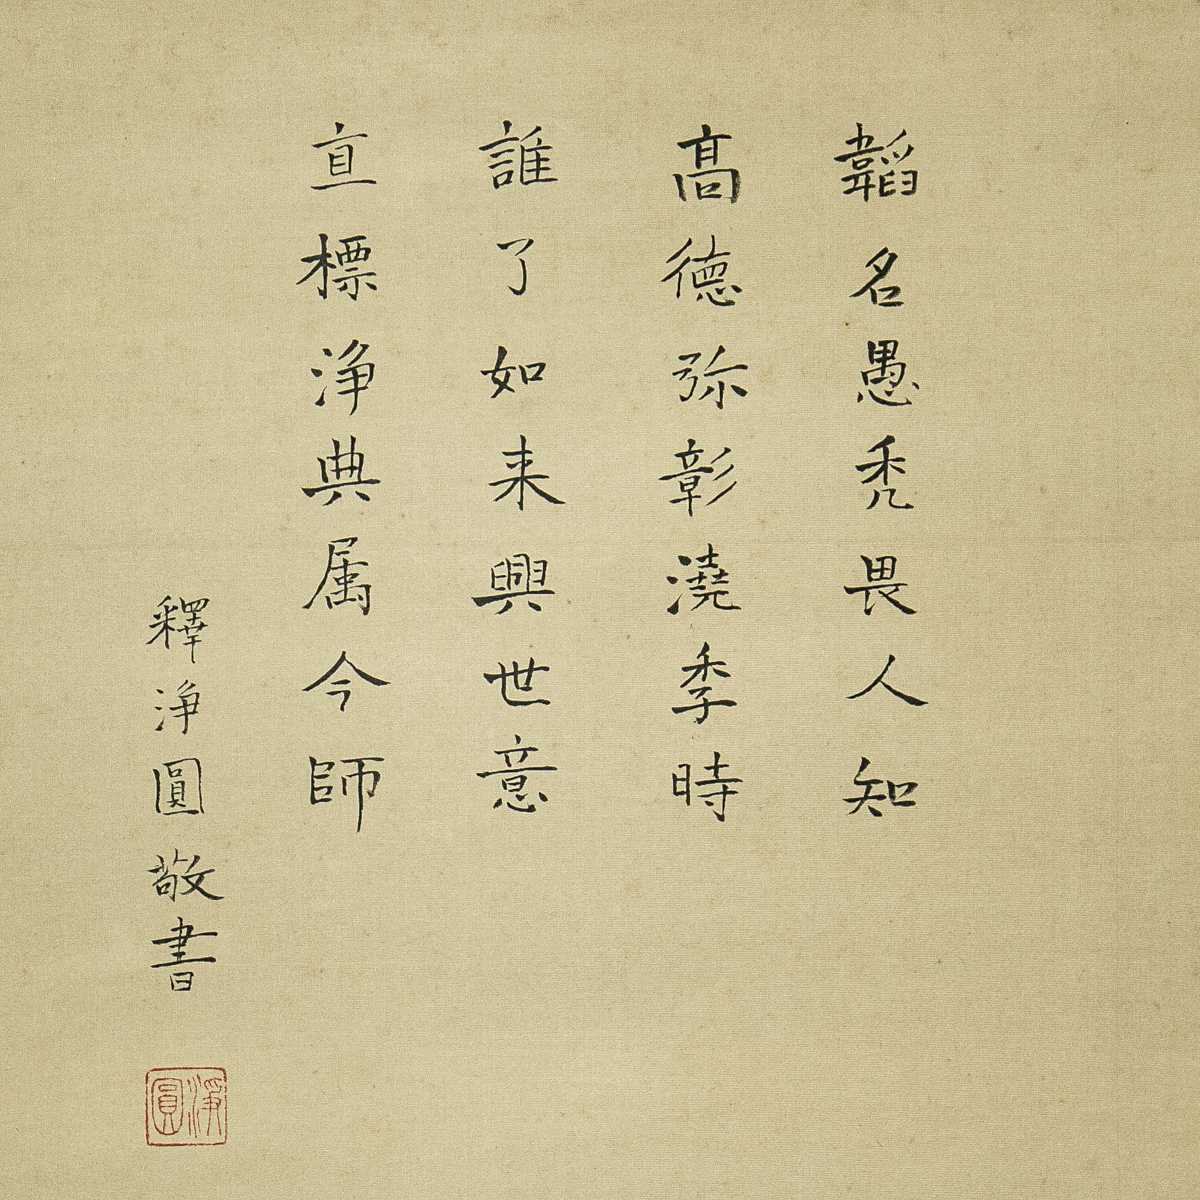 韜名愚禿畏人知
高德弥彰澆季時
誰了如来興世意
直標淨典属今師
釋淨圓敬書
淨圓